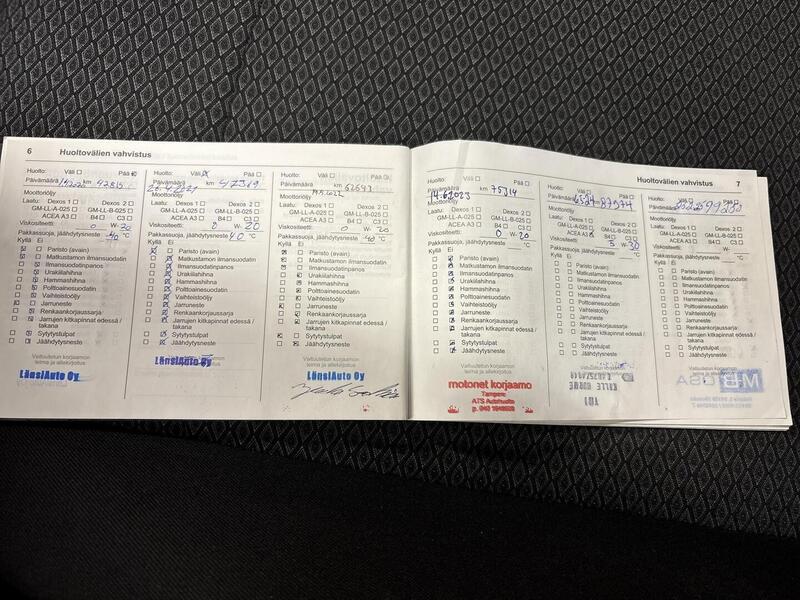 6 Huoltovälien vahvistus
Huolto: Väli Pää
km 42815
Moottoriöljy
Laatu: Dexos 1 Dexos 2
GM-LL-A-025 GM-LL-B-025
ACEA A3 B4 C3
Viskositeetti: 0 W- 20
Pakkassuoja, jäähdytysneste -40 °C
Kyllä Ei
Paristo (avain)
Matkustamon ilmansuodatin
Ilmansuodatinpanos
Urakiilahihna
Hammashihna
Polttoainesuodatin
Vaihteistoöljy
Jarruneste
Renkaankorjaussarja
Jarrujen kitkapinnat edessä /
takana
Sytytystulpat
Jäähdytysneste
Valtuutetun korjaamon
leima ja allekirjoitus
LänsiAuto Oy
Huolto: Väli Pää
Päivämäärä km 47369
Moottoriöljy
Laatu: Dexos 1 Dexos 2
GM-LL-A-025 GM-LL-B-025
ACEA A3 B4 C3
Viskositeetti: 0 W- 20
Pakkassuoja, jäähdytysneste 40 °C
Kyllä Ei
Paristo (avain)
Matkustamon ilmansuodatin
Ilmansuodatinpanos
Urakiilahihna
Hammashihna
Polttoainesuodatin
Vaihteistoöljy
Jarruneste
Renkaankorjaussarja
Jarrujen kitkapinnat edessä /
takana
Sytytystulpat
Jäähdytysneste
LänsiAuto Oy
Huolto: Väli Pää
Päivämäärä km 62643
Moottoriöljy
Laatu: Dexos 1 Dexos 2
GM-LL-A-025 GM-LL-B-025
ACEA A3 B4 C3
Viskositeetti: 0 W- 20
Pakkassuoja, jäähdytysneste -40 °C
Kyllä Ei
Paristo (avain)
Matkustamon ilmansuodatin
Ilmansuodatinpanos
Urakiilahihna
Hammashihna
Polttoainesuodatin
Vaihteistoöljy
Jarruneste
Renkaankorjaussarja
Jarrujen kitkapinnat edessä /
takana
Sytytystulpat
Jäähdytysneste
Valtuutetun korjaamon
leima ja allekirjoitus
LänsiAuto Oy
Huoltovälien vahvistus 7
Huolto: Väli Pää
Päivämäärä 14.6.2023 km 75314
Moottoriöljy
Laatu: Dexos 1 Dexos 2
GM-LL-A-025 GM-LL-B-025
ACEA A3 B4 C3
Viskositeetti: 0 W- 20
Pakkassuoja, jäähdytysneste °C
Kyllä Ei
Paristo (avain)
Matkustamon ilmansuodatin
Ilmansuodatinpanos
Urakiilahihna
Hammashihna
Polttoainesuodatin
Vaihteistoöljy
Jarruneste
Renkaankorjaussarja
Jarrujen kitkapinnat edessä /
takana
Sytytystulpat
Jäähdytysneste
Valtuutetun korjaamon
leima ja allekirjoitus
motonet korjaamo
Tampere
ATS Autohuolto
Huolto: Väli Pää
Päivämäärä
Moottoriöljy
Laatu: Dexos 1 Dexos 2
GM-LL-A-025 GM-LL-B-025
ACEA A3 B4 C3
Viskositeetti: 5 W- 30
Pakkassuoja, jäähdytysneste °C
Kyllä Ei
Paristo (avain)
Matkustamon ilmansuodatin
Ilmansuodatinpanos
Urakiilahihna
Hammashihna
Polttoainesuodatin
Vaihteistoöljy
Jarruneste
Renkaankorjaussarja
Jarrujen kitkapinnat edessä /
takana
Sytytystulpat
Jäähdytysneste
Valtuutetun korjaamon
leima ja allekirjoitus
Huolto:
Päivämäärä
Moottoriöljy
Laatu: Dexos 1 Dexos 2
GM-LL-A-025 GM-LL-B-025
ACEA A3 B4 C3
Viskositeetti: W-
Pakkassuoja, jäähdytysneste °C
Kyllä Ei
Paristo (avain)
Matkustamon ilmansuodatin
Ilmansuodatinpanos
Urakiilahihna
Hammashihna
Polttoainesuodatin
Vaihteistoöljy
Jarruneste
Renkaankorjaussarja
Jarrujen kitkapinnat edessä /
takana
Sytytystulpat
Jäähdytysneste
Valtuutetun korjaamon
leima ja allekirjoitus